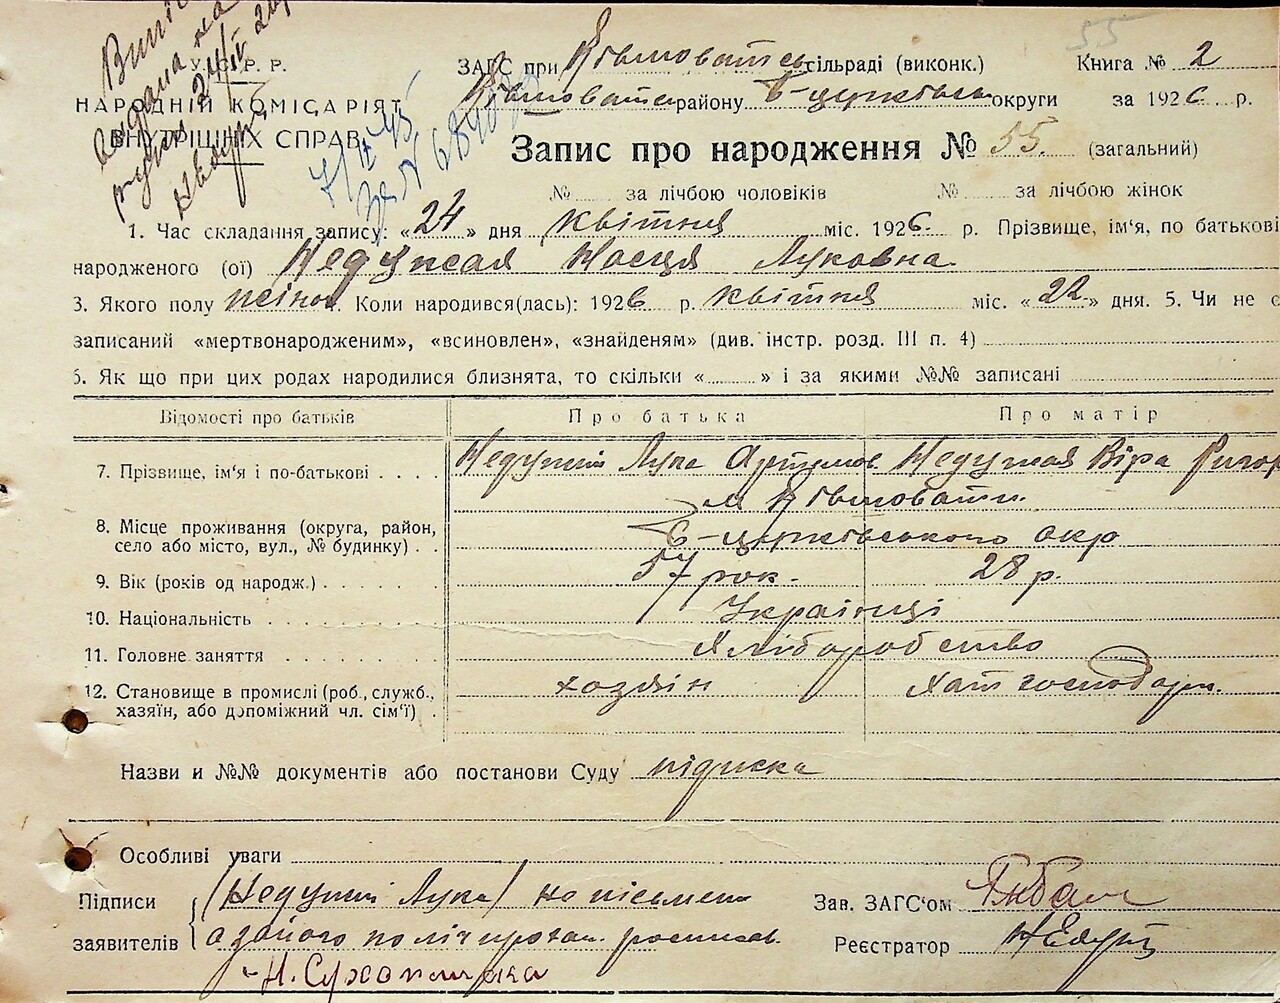 55
У. С. Р. Р.
НАРОДНІЙ КОМІСАРІЯТ
ВНУТРІШНІХ СПРАВ
ЗАГС при сільраді (виконк.) Книга № 2
району Б-церківсь округи за 1926 р.
Запис про народження № 55. (загальний)
№ за лічбою чоловіків № за лічбою жінок
1. Час складання запису: «24» дня квітня міс. 1926. р. Прізвище, ім'я, по батькові
народженого (ої) Недужая Настя Луковна
3. Якого полу жіноч. Коли народився(лась): 1926 р. квітня міс. «22» дня. 5. Чи не є
записаний «мертвонародженим», «всиновлен», «знайденям» (див. інстр. розд. III п. 4)
6. Як що при цих родах народилися близнята, то скільки « » і за якими №№ записані
Відомості про батьків Про батька Про матір
7. Прізвище, ім'я і по-батькові . . . . Недужий Лука Артемов. Недужая Віра Григор
8. Місце проживання (округа, район,
село або місто, вул., № будинку) . . Б-церківського окр
9. Вік (років од народж.) . . . . . 57 рок. 28 р.
10. Національність . . . . . . . . Українці
11. Головне заняття . . . . . . . Хліборобство
12. Становище в промислі (роб., службб.,
хазяїн, або допоміжний чл. сім'ї) . хозяін Хат господарк.
Назви и №№ документів або постанови Суду підписка
Особливі уваги
Підписи (Недужий Лука) не пісьмен
заявителів а за його по ліч прохан. росписавс.
Н. Сухомлика
Зав. ЗАГС'ом
Реєстратор